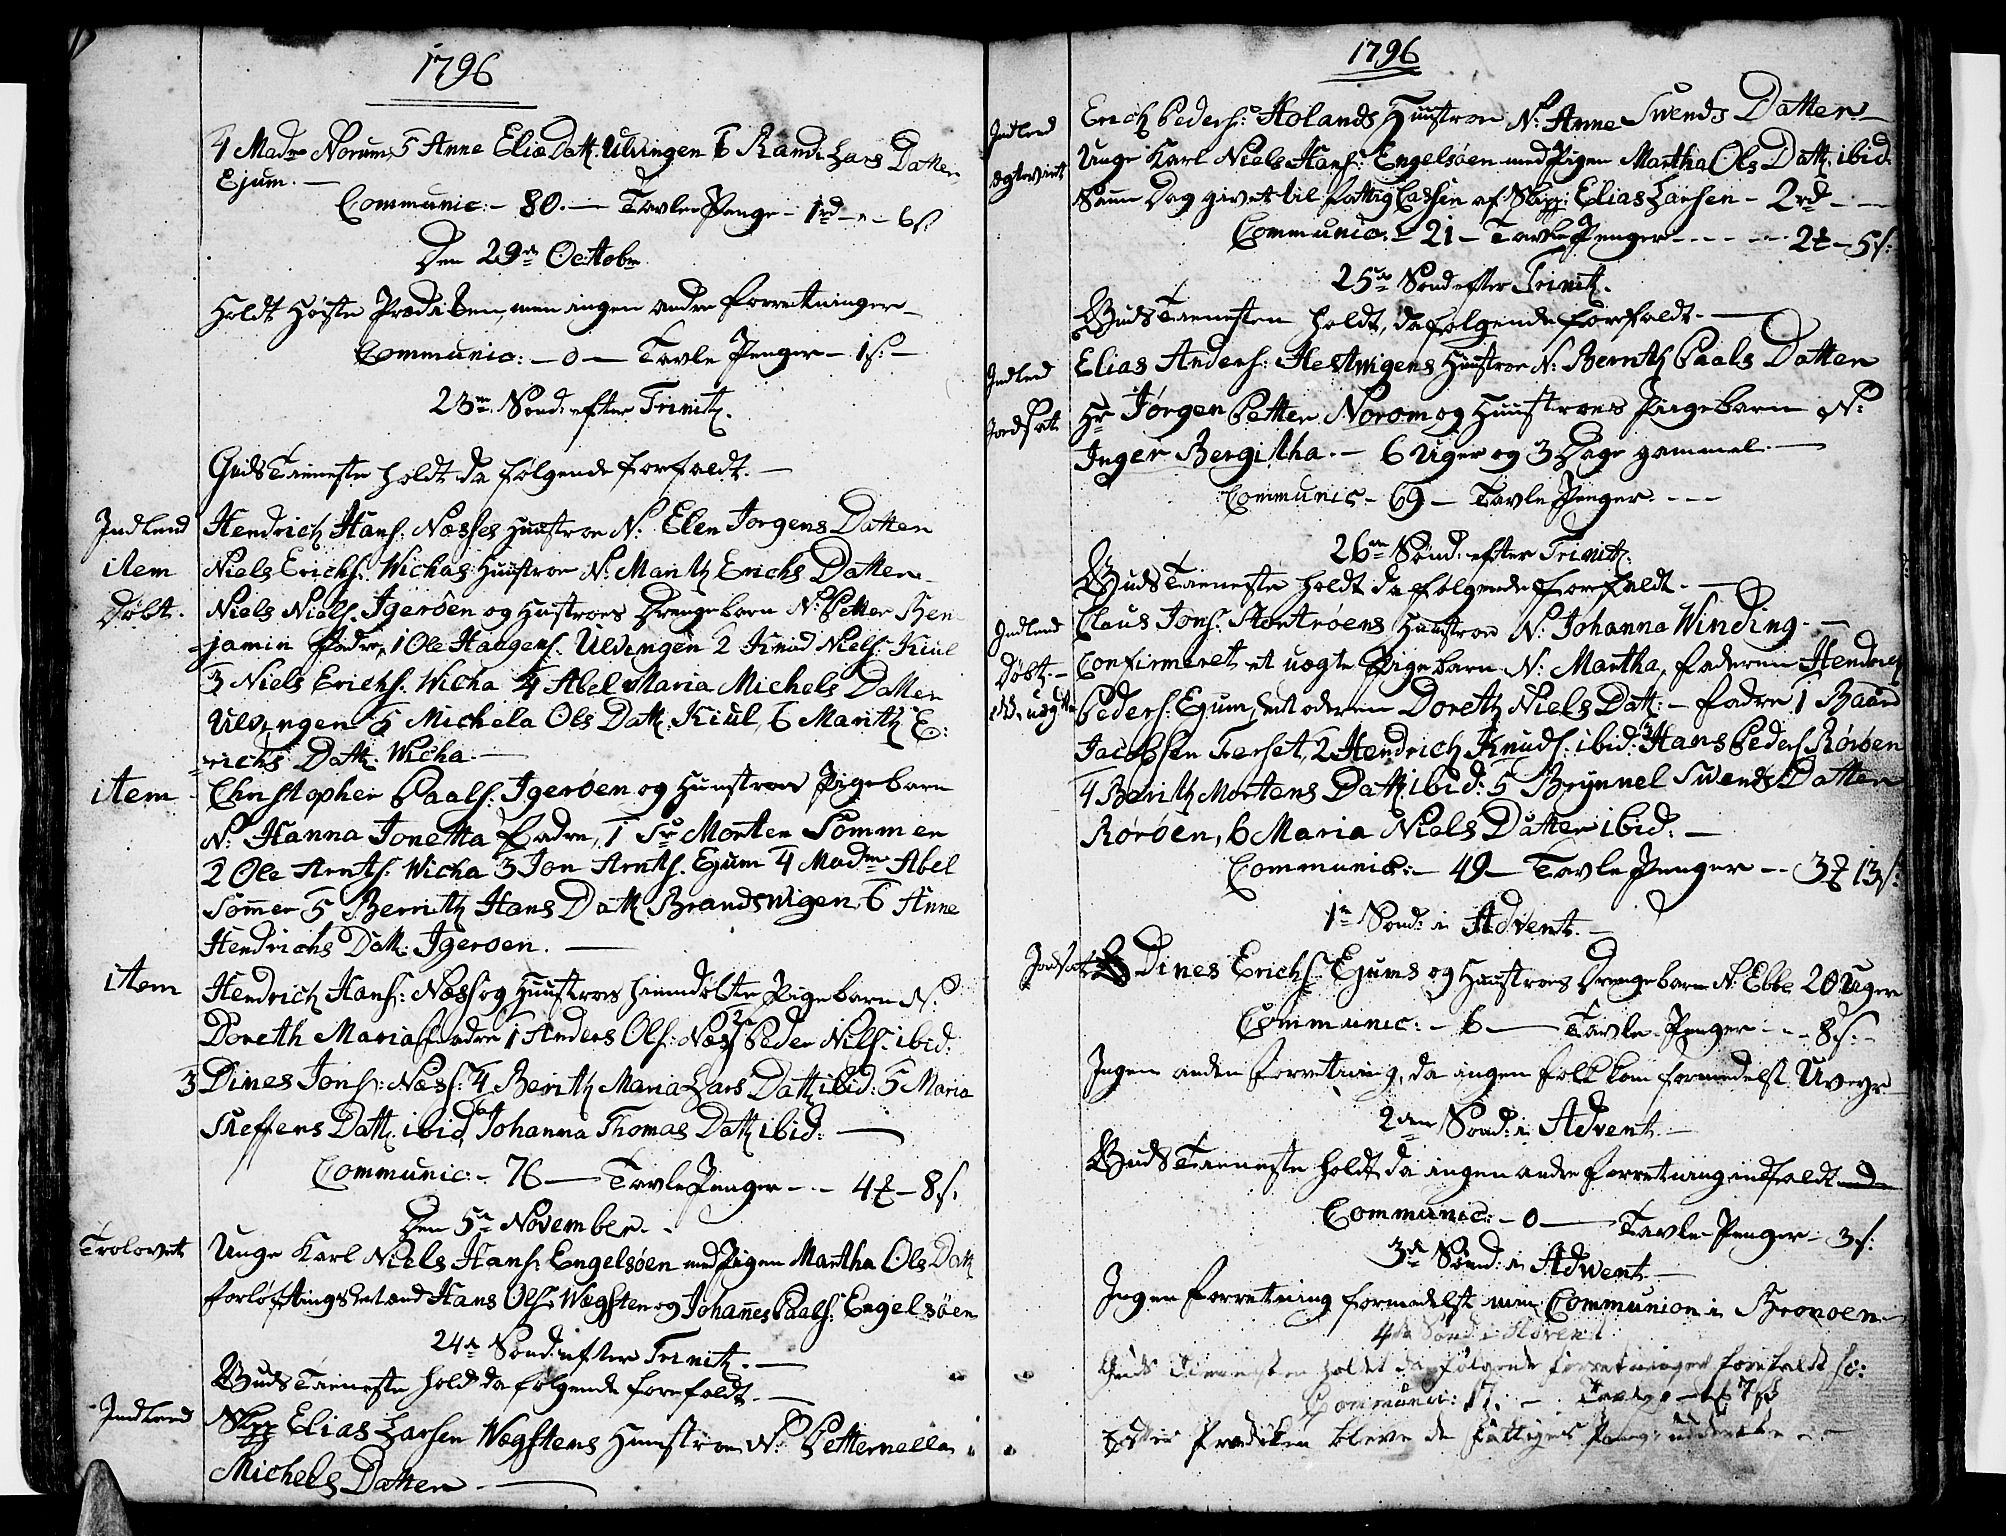 1796
4 Mad<sup>me</sup> Norum, 5 Anne Eliæ Datt. Ulvingen 6 Randi Lars Datter
Ejum. —
Communic: - 80. — Tavle Penge - 1rd - " - 6s
Den 29<sup>de</sup> Octobr
Holdt Høiste Prædiken, men ingen andre Forretninger —
Communic: - 0 — Tavle Penger - 1s: -
23<sup>de</sup> Sønd: efter Trinit.
Guds Tieneste holdt da følgende forfaldt. —
Indled Hendrich Hans: Næsses Huustroe N: Elen Jørgens Datter
item Niels Erichs: Wichas Huustroe N: Marith Erichs Datter
Døbt. Niels Niels. Igerøen og Hustroes Drengebarn N: Petter Ben-
jamin Fadre, 1 Ole Haagens. Ulvingen 2 Knud Niels. Kiul
3 Niels Erichs. Wicha 4 Abel Maria Michels Datter
Ulvingen 5 Michela Ols Datt. Kiul, 6 Marith E:
richs Datt. Wicha. —
item Christopher Paals. Igerøen og Huustroes Pigebarn
N: Hanna Jonetta Fadre, 1 Sr Morten Sommer
2 Ole Arnts: Wicha 3 Jon Arnts. Ejum 4 Mad<sup>me</sup> Abel
Somer 5 Berrith Hans Datt Brandsvigen, 6 Anne
Hendrichs Datt: Igerøen. —
item Hendrich Hans: Næss og Huustroes hiemdøbte Pigebarn N:
Doreth Maria Fadre 1 Anders Ols: Næss 2 Peder Nils. ibid:
3 Dines Jons: Næss: 4 Berith Maria Lars Datt ibid: 5 Maria
Steffens Datt. ibid 6 Johanna Thomas Datt ibid: —
Communic: - 76 — Tavle Penger - - 4 ℔ - 8s.
Den 5<sup>te</sup> November -
Trolovet Unge Karl Niels Hans. Engelsøen med Pigen Martha Ols Datt
forløftingsmænd Hans Ols: Wægsten og Johannes Paals: Engelsøen
24<sup>de</sup> Sønd: efter Trinit. —
Guds Tieneste holdt da følgende forefaldt. —
Indled Skipp Elias Larsen Wægstens Huustroe N: Petternella
Michels Datter —
1796
Indled Erich Peders: Holands Huustroe N: Anne Svends Datter
Ægteviet Unge Karl Niels Hans: Engelsøen med Pigen Martha Ols Datt. ibid.
Samme Dag givet til Fattig Cassen af Skipp: Elias Larsen - 2rd - -
Communic: - 21 - Tavle Penger - - - - - 2 ℔ - 5s:
25<sup>de</sup> Sønd efter Trinit.
Guds Tienesten holdt, da følgende forfaldt. —
Indled Elias Anders: Hestvigens Huustroe N: Bernth Paals Datter
Jordsat Hr Jørgen Petter Norom og Huustroes Pigebarn N:
Inger Bergitha. - 6 Uger og 3 Dage gammel —
Communic - 69 — Tavle Penger - - -
26<sup>de</sup> Sønd: efter Trinit.
Guds Tieneste holdt da følgende forfaldt. —
Indled Claus Jons. Stortrøens Huustroe N: Johanna Winding. —
Døbt. Confirmeret et uægte Pigebarn N: Martha, Faderen Hendrich
uægte Peders. Ejum, Moderen Doreth Niels Datt: - Fadre 1 Baard
Jacobsen Forset, 2 Hendrich Knuds. ibid: 3 Hans Peders Rørøen
4 Berith Mortens Datt. ibid: 5 Brynnel Svends Datter
Rørøen, 6 Maria Niels Datter ibid: —
Communic: - 49 - Tavle Penger - - 3 ℔ 13s:
1<sup>te</sup> Sønd: i Advent. —
Jordsat Dines Erichs. Ejums og Huustroes Drengebarn N: Ebbe 20 Uger
Communic: - 6 — Tavle-Penger - - - 8s: -
Ingen anden Forretning, da ingen Folk kom formedelst Uveyr
2den Sønd: i Advent —
Guds Tieneste holdt, da ingen andre Forretning indfaldt
Communic: - 0 — Tavle-Penger - 3s.
3<sup>de</sup> Sønd: i Adwent. —
Ingen Forretning formedelst min Communion i Brønøen
4de Sønd i Advent
Guds Tienesten holdt da følgende Forretninger forefaldt
Communic: 17. — Tavlep
Efter Prædiken bleve de Fattiges Penge uddeelte —